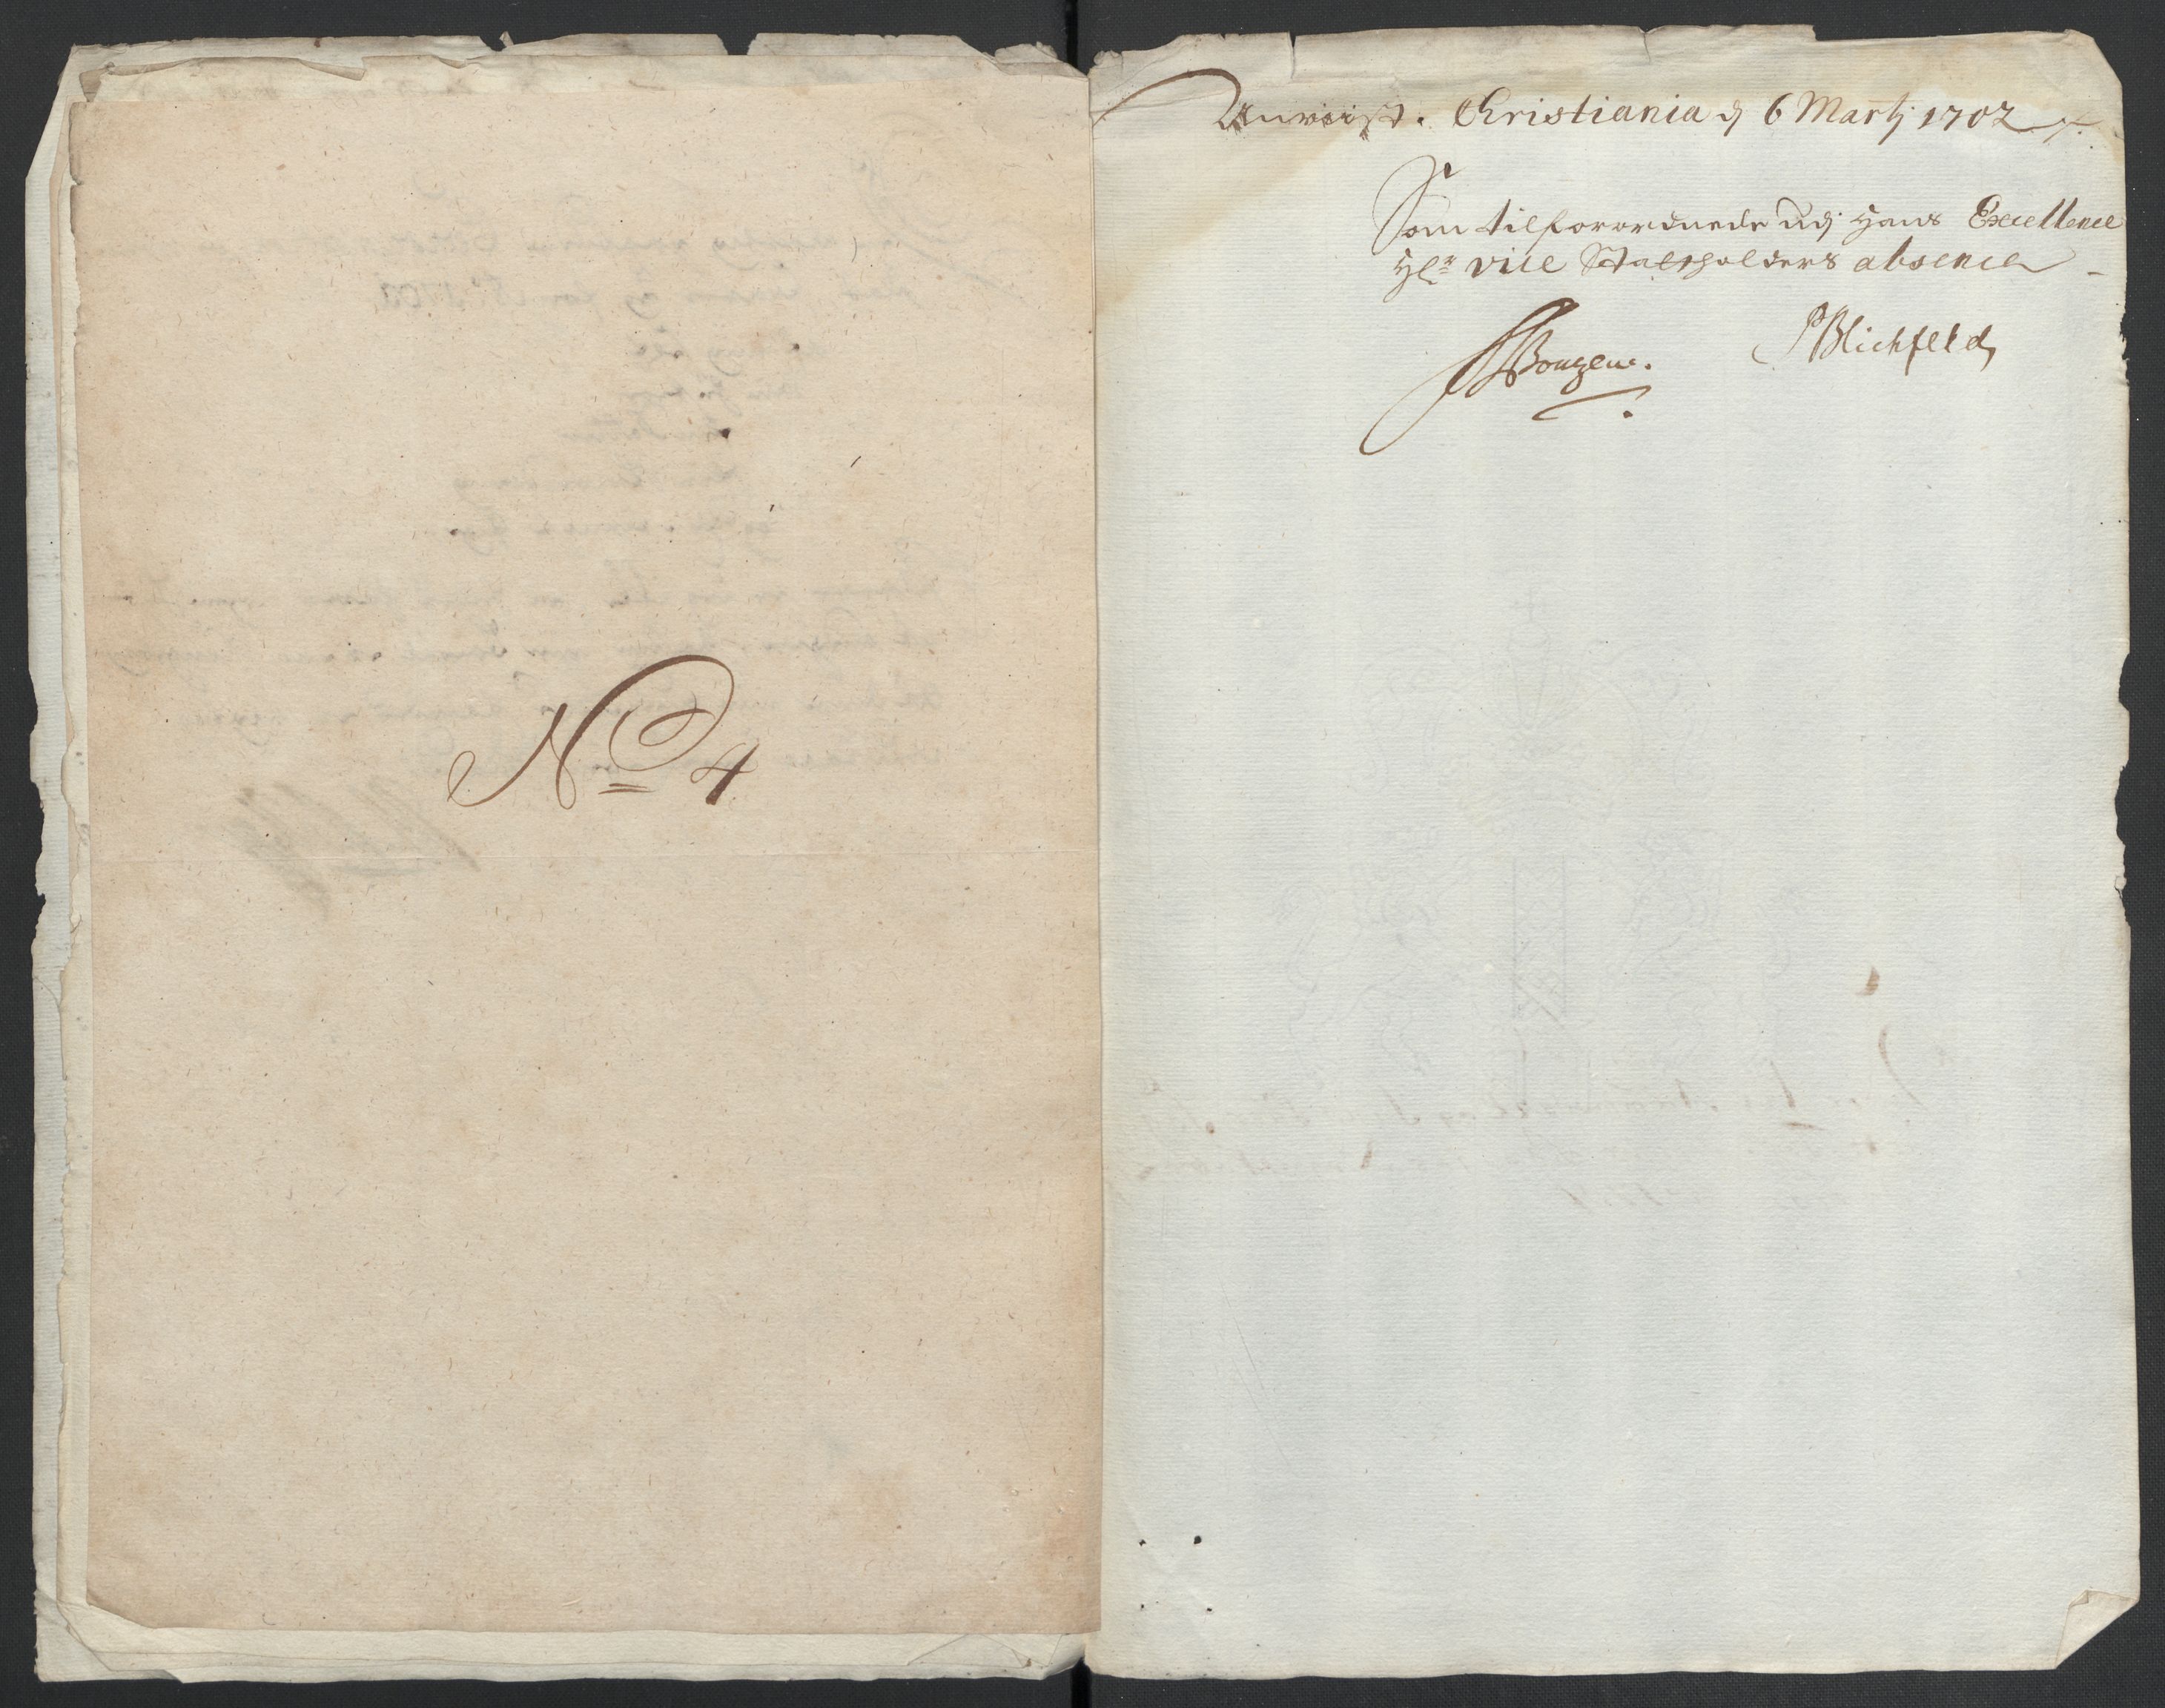 No 4
Anviist. Christiania dj 6 Martj 1702
Som tilforordnede udj Hans Excellence
Hr. vice Statholders absence
PBlichfeld